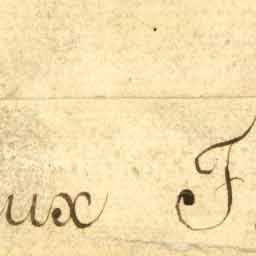 ux F